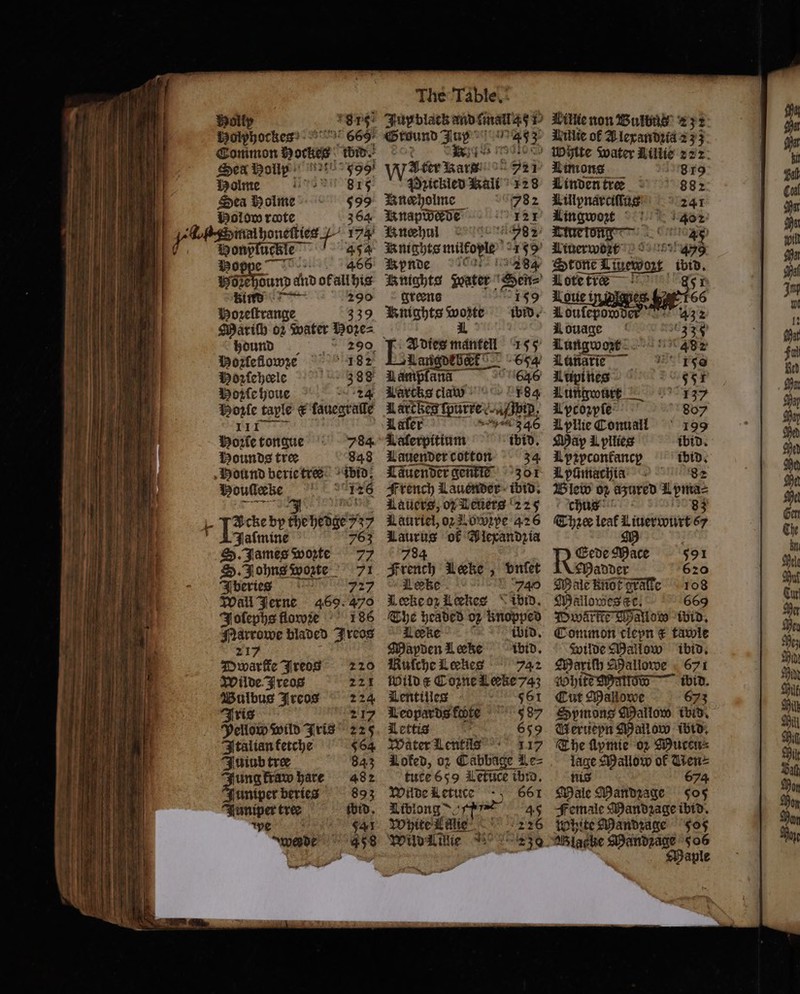 The Table.
Holly 815
Holyhockes 669
Common Hockes ibid.
Sea Holly 599
Holme 815
Sea Holme 599
Holow roote 364
Smal honesties 174
Honysuckle 454
Hoppe 466
Horehound and of all his
kind 290
Horestrange 339
Marish or water Hore=
hound 290
Horseflowre 182
Horseheele 388
Horsehoue 24
Horse tayle & sauegrasse
111
Horse tongue 784
Hounds tree 848
Hound berie tree ibid.
Houslecke 126
J
Acke by the hedge 737
Jasmine 763
S. James worte 77
S. Johns worte 71
Iberies 727
Wall Jerne 469. 470
Josephs flowre 186
Narrowe bladed Ireos
217
Dwarffe Ireos 220
Wilde Ireos 221
Bulbus Ireos 224
Iris 217
Yellow wild Iris 225
Italian fetche 564
Juiub tree 843
Jung fraw hare 482
Juniper beries 893
Juniper tree ibid.
541
458
Juy black and small 451
Ground Juy 453
K
Ater Kars 721
Prickled Kali 128
Kneeholme 782
Knapweede 121
Kneehul 782
Knights milfoyle 159
Kynde 284
Knights water Sen=
greene 159
Knights worte ibid.
L
Adies mantell 155
Langdebeef 654
Lampsana 646
Larcks claw 184
Larckes spurre ibid.
Laser 346
Laserpitium ibid.
Lauender cotton 34
Lauender gentle 301
French Lauender ibid.
Lauers, or Leuers 225
Lauriel, or Lowrye 426
Laurus of Alexandria
784
French Leeke, vnset
Leeke 740
Leeke or Leekes ibid.
The headed or knopped
Leeke ibid.
Mayden Leeke ibid.
Rusche Leekes 742
Wild & Corne Leeke 743
Lentilles 561
Leopards foote 587
Lettis 659
Water Lentils 117
Losed, or Cabbage Le=
tuce 659 Letuce ibid.
Wilde Letuce 661
Liblong 45
White Lillie 226
Wild Lillie 230
Lillie non Bulbus 232
Lillie of Alexandria 233
White water Lillie 222
Limons 819
Linden tree 882
Lillynarcissus 241
Lingwort 402
Liuelong 45
Liuerwort 479
Stone Liuewort ibid.
Lote tree 851
Loue in 166
Lousepowder 432
Louage 335
Lungwort 482
Lunarie 158
Lupines 551
Lungwurt 137
Lycorysse 807
Lyllie Conuall 199
May Lyllies ibid.
Lyryconfancy ibid.
Lysimachia 82
Blew or azured Lyma=
chus 83
Three leaf Liuerwurt 67
M
Eede Mace 591
Madder 620
Male knot grasse 108
Mallowes &c. 669
Dwarffe Mallow ibid.
Common cleyn & tawle
wilde Mallow ibid.
Marish Mallowe 671
White Mallow ibid.
Cut Mallowe 673
Symons Mallow ibid.
Verueyn Mallow ibid.
The slymie or Mucen=
lage Mallow of Uen=
nis 674
Male Mandrage 505
Female Mandrage ibid.
White Mandrage 505
Blacke Mandrage 506
Maple